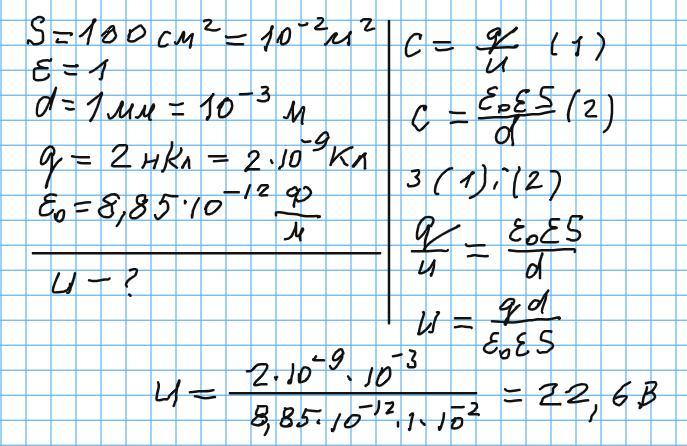 S = 100 см² = 10⁻² м²
ε = 1
d = 1 мм = 10⁻³ м
q = 2 нКл = 2·10⁻⁹ Кл
ε₀ = 8,85·10⁻¹² ф/м
u – ?
C = q/u (1)
C = ε₀εS/d (2)
З (1) і (2)
q/u = ε₀εS/d
u = qd/ε₀εS
u = 2·10⁻⁹·10⁻³/8,85·10⁻¹²·1·10⁻² = 22,6 В